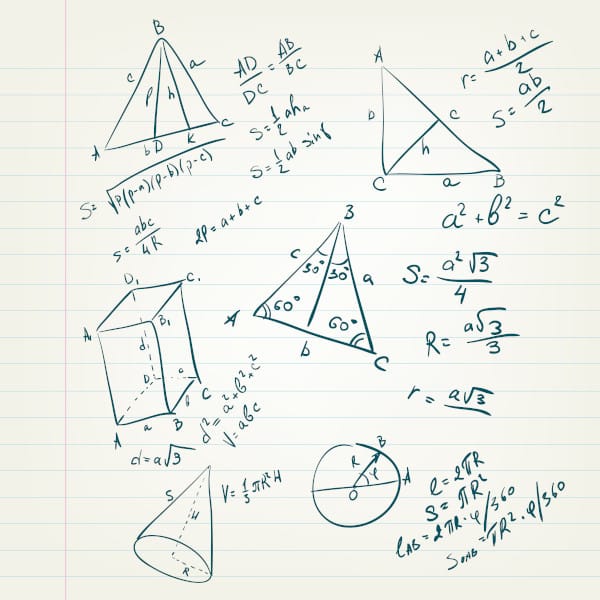 B
c p h a
A b D K C
AD/DC = AB/BC
S = 1/2 ahₐ
S = 1/2 ab sinγ
S = √p(p-a)(p-b)(p-c)
S = abc/4R
2P = a+b+c
A
D C
h
C a B
r = a+b+c/2
S = ab/2
a² + b² = c²
B
c 30° 30° a
A 60° 60°
b C
S = a²√3/4
R = a√3/3
r = a√3
D₁ C₁
A₁ B₁
d
D a C
A a B
d² = a²+b²+c²
V = abc
d = a√3
S H
V = 1/3 πR²H
R B
φ
O A
ℓ = 2πR
S = πR²
ℓAB = 2πR·φ/360
SOAB = πR²·φ/360